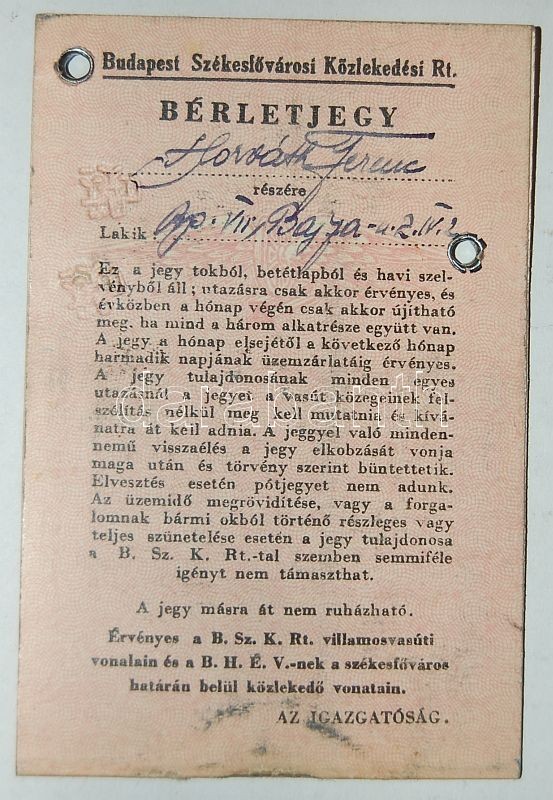 Budapest Székesfővárosi Közlekedési Rt.
BÉRLETJEGY
Horváth Ferenc
részére
Lakik: Bp. VII, Bajza-u. 2. IV. 2
Ez a jegy tokból, betétlapból és havi szel-
vényből áll; utazásra csak akkor érvényes, és
évközben a hónap végén csak akkor újítható
meg, ha mind a három alkatrésze együtt van.
A jegy a hónap elsejétől a következő hónap
harmadik napjának üzemzárlatáig érvényes.
A jegy tulajdonosának minden egyes
utazásnál a jegyet a vasút közegeinek fel-
szólítás nélkül meg kell mutatnia és kívá-
natra át kell adnia. A jeggyel való minden-
nemű visszaélés a jegy elkobzását vonja
maga után és törvény szerint büntettetik.
Elvesztés esetén pótjegyet nem adunk.
Az üzemidő megrövidítése, vagy a forga-
lomnak bármi okból történő részleges vagy
teljes szünetelése esetén a jegy tulajdonosa
a B. Sz. K. Rt.-tal szemben semmiféle
igényt nem támaszthat.
A jegy másra át nem ruházható.
Érvényes a B. Sz. K. Rt. villamosvasúti
vonalain és a B. H. É. V.-nek a székesfőváros
határán belül közlekedő vonatain.
AZ IGAZGATÓSÁG.